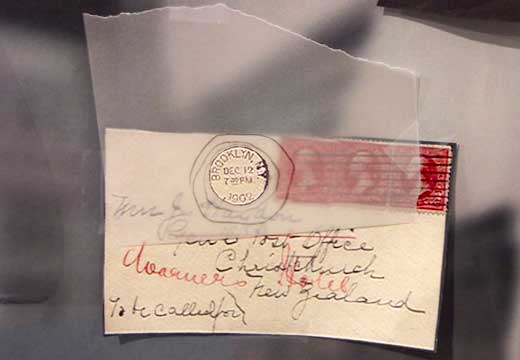 BROOKLYN, N.Y.
DEC 12
7 30 PM
1902
Mrs
Post Office
Christchurch
Warners Hotel
New Zealand
To be Called for